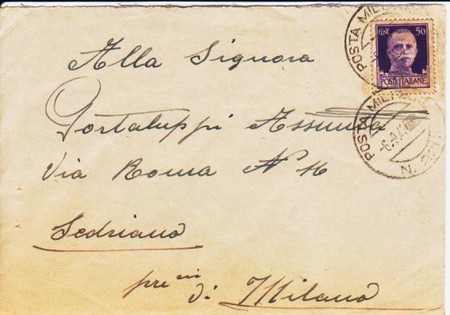 POSTA MILITARE
CENT 50
POSTE ITALIANE
POSTA MILITARE
N.
Alla Signora
Portaluppi Assunta
Via Roma N° 16
Sedriano
pressi
di Milano